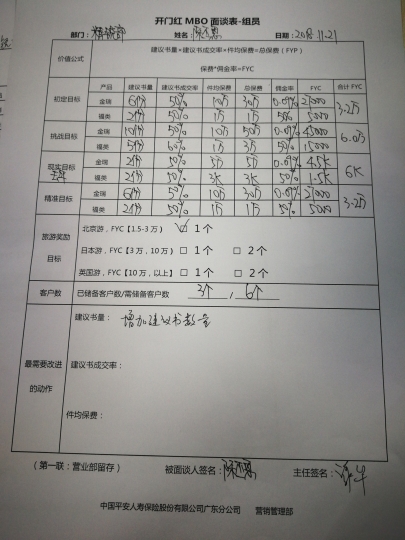 开门红 MBO 面谈表-组员
部门： 姓名： 日期：2018.11.21
价值公式 建议书量×建议书成交率×件均保费=总保费（FYP）
保费*佣金率=FYC
产品 建议书量 建议书成交率 件均保费 总保费 佣金率 FYC 合计 FYC
初定目标 金瑞 6份 50% 10万 30万 0.09% 27000 3.2万
福类 2份 50% 1万 1万 50% 5000
挑战目标 金瑞 10份 50% 10万 50万 0.09% 45000 6.0万
福类 5份 60% 1万 3万 50% 15000
现实目标 金瑞 2份 50% 5万 5万 0.09% 4.5K 6K
福类 2份 50% 3K 3K 50% 1.5K
精准目标 金瑞 6份 50% 10万 30万 0.09% 27000 3.2万
福类 2份 50% 1万 1万 50% 5000
旅游奖励目标 北京游，FYC【1.5-3 万） ☑ 1 个
日本游，FYC【3 万，10 万） □ 1 个 □ 2 个
英国游，FYC【10 万，以上】 □ 1 个 □ 2 个
客户数 已储备客户数/需储备客户数 3个 , 6个
最需要改进的动作 建议书量： 增加建议书数量
建议书成交率：
件均保费：
（第一联：营业部留存） 被面谈人签名： 主任签名：
中国平安人寿保险股份有限公司广东分公司 营销管理部